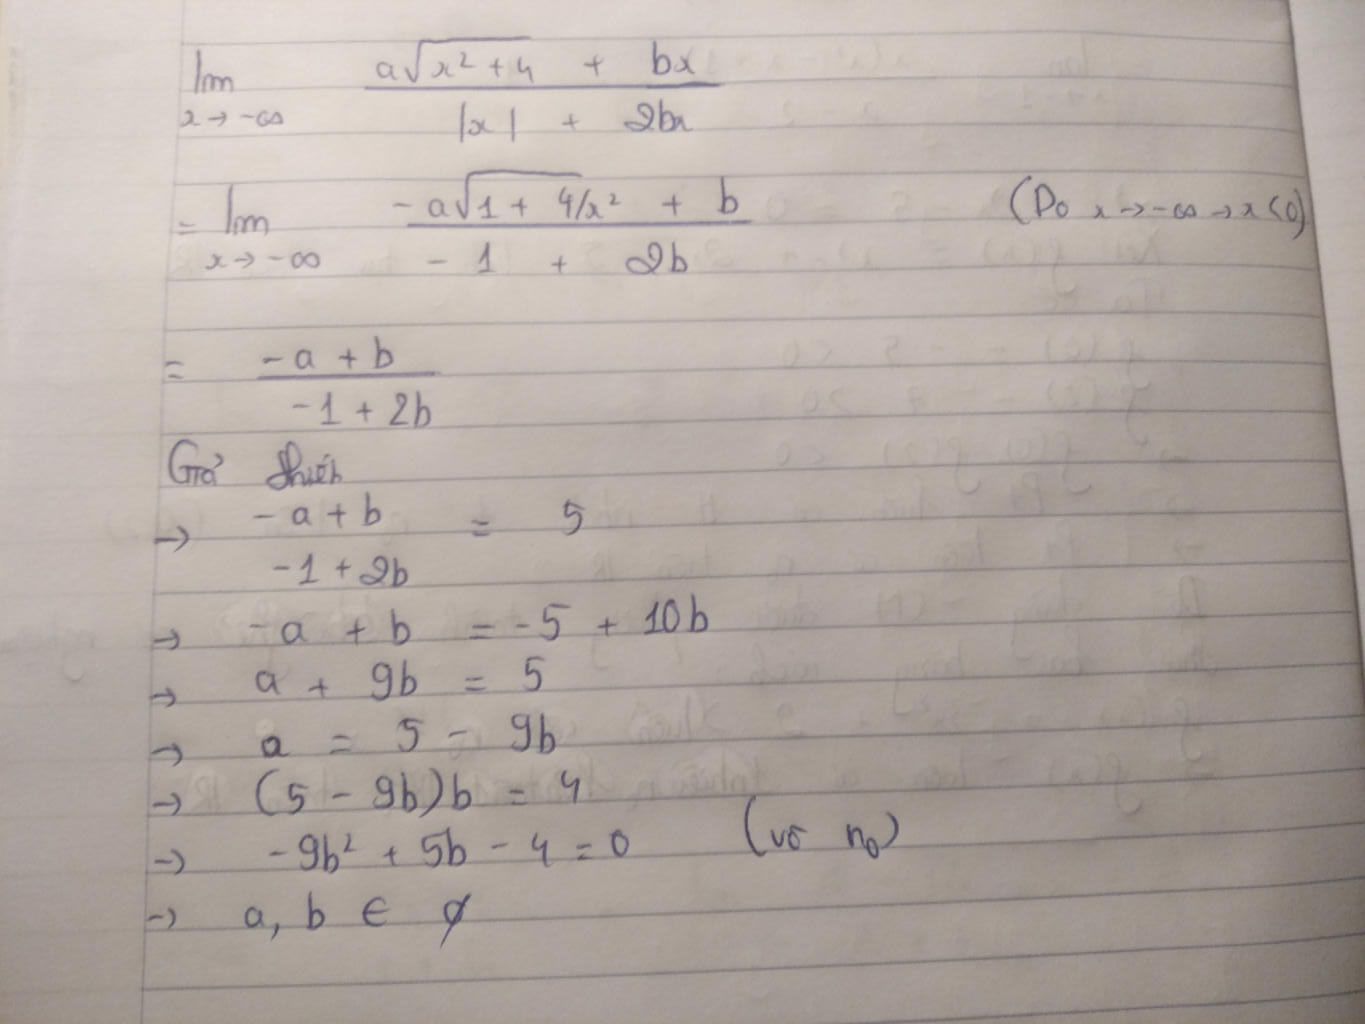 lim a√(x² + 4) + bx
x → -∞ |x| + 2bx
= lim -a√(1 + 4/x²) + b (Do x → -∞ → x < 0)
x → -∞ -1 + 2b
= -a + b
-1 + 2b
Giả thiết
→ -a + b = 5
-1 + 2b
→ -a + b = -5 + 10b
→ a + 9b = 5
→ a = 5 - 9b
→ (5 - 9b)b = 4
→ -9b² + 5b - 4 = 0 (vô n₀)
→ a, b ∈ ∅